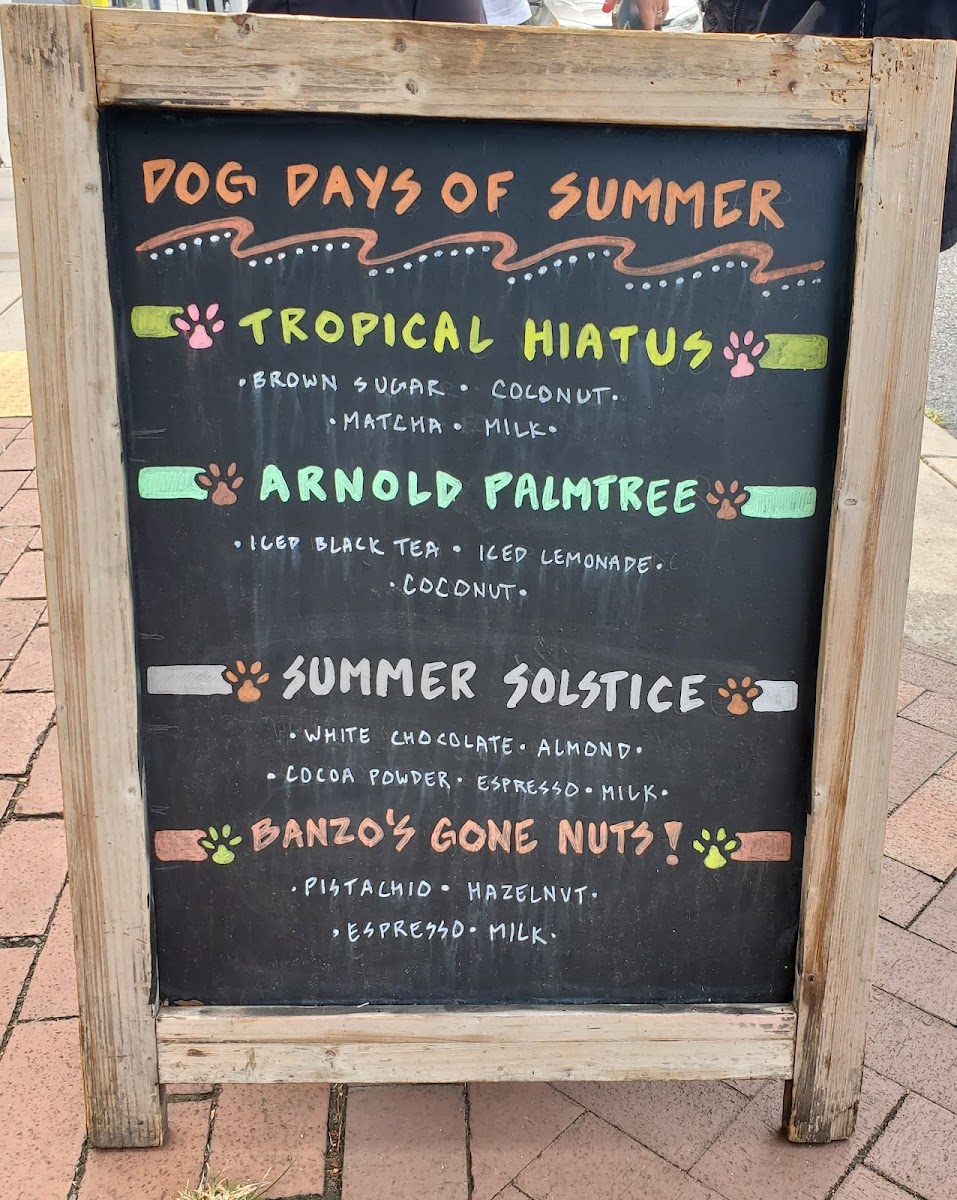 DOG DAYS OF SUMMER
TROPICAL HIATUS
•BROWN SUGAR• COCONUT•
•MATCHA• MILK•
ARNOLD PALMTREE
•ICED BLACK TEA • ICED LEMONADE•
•COCONUT•
SUMMER SOLSTICE
•WHITE CHOCOLATE• ALMOND•
•COCOA POWDER• ESPRESSO•MILK•
BANZO'S GONE NUTS!
•PISTACHIO• HAZELNUT•
•ESPRESSO•MILK•